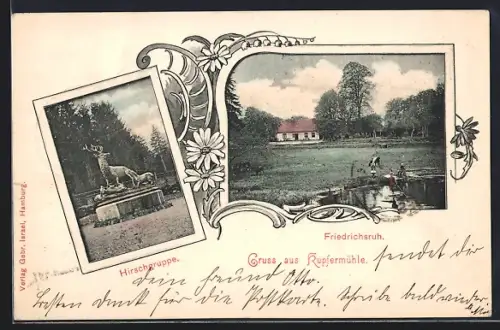 Verlag Gebr. Israel, Hamburg.
Friedrichsruh.
Hirschgruppe.
Gruss aus Kupfermühle.
sendet dir
dein Freund Otto.
Besten Dank für die Postkarte. Schreibe bald wieder.